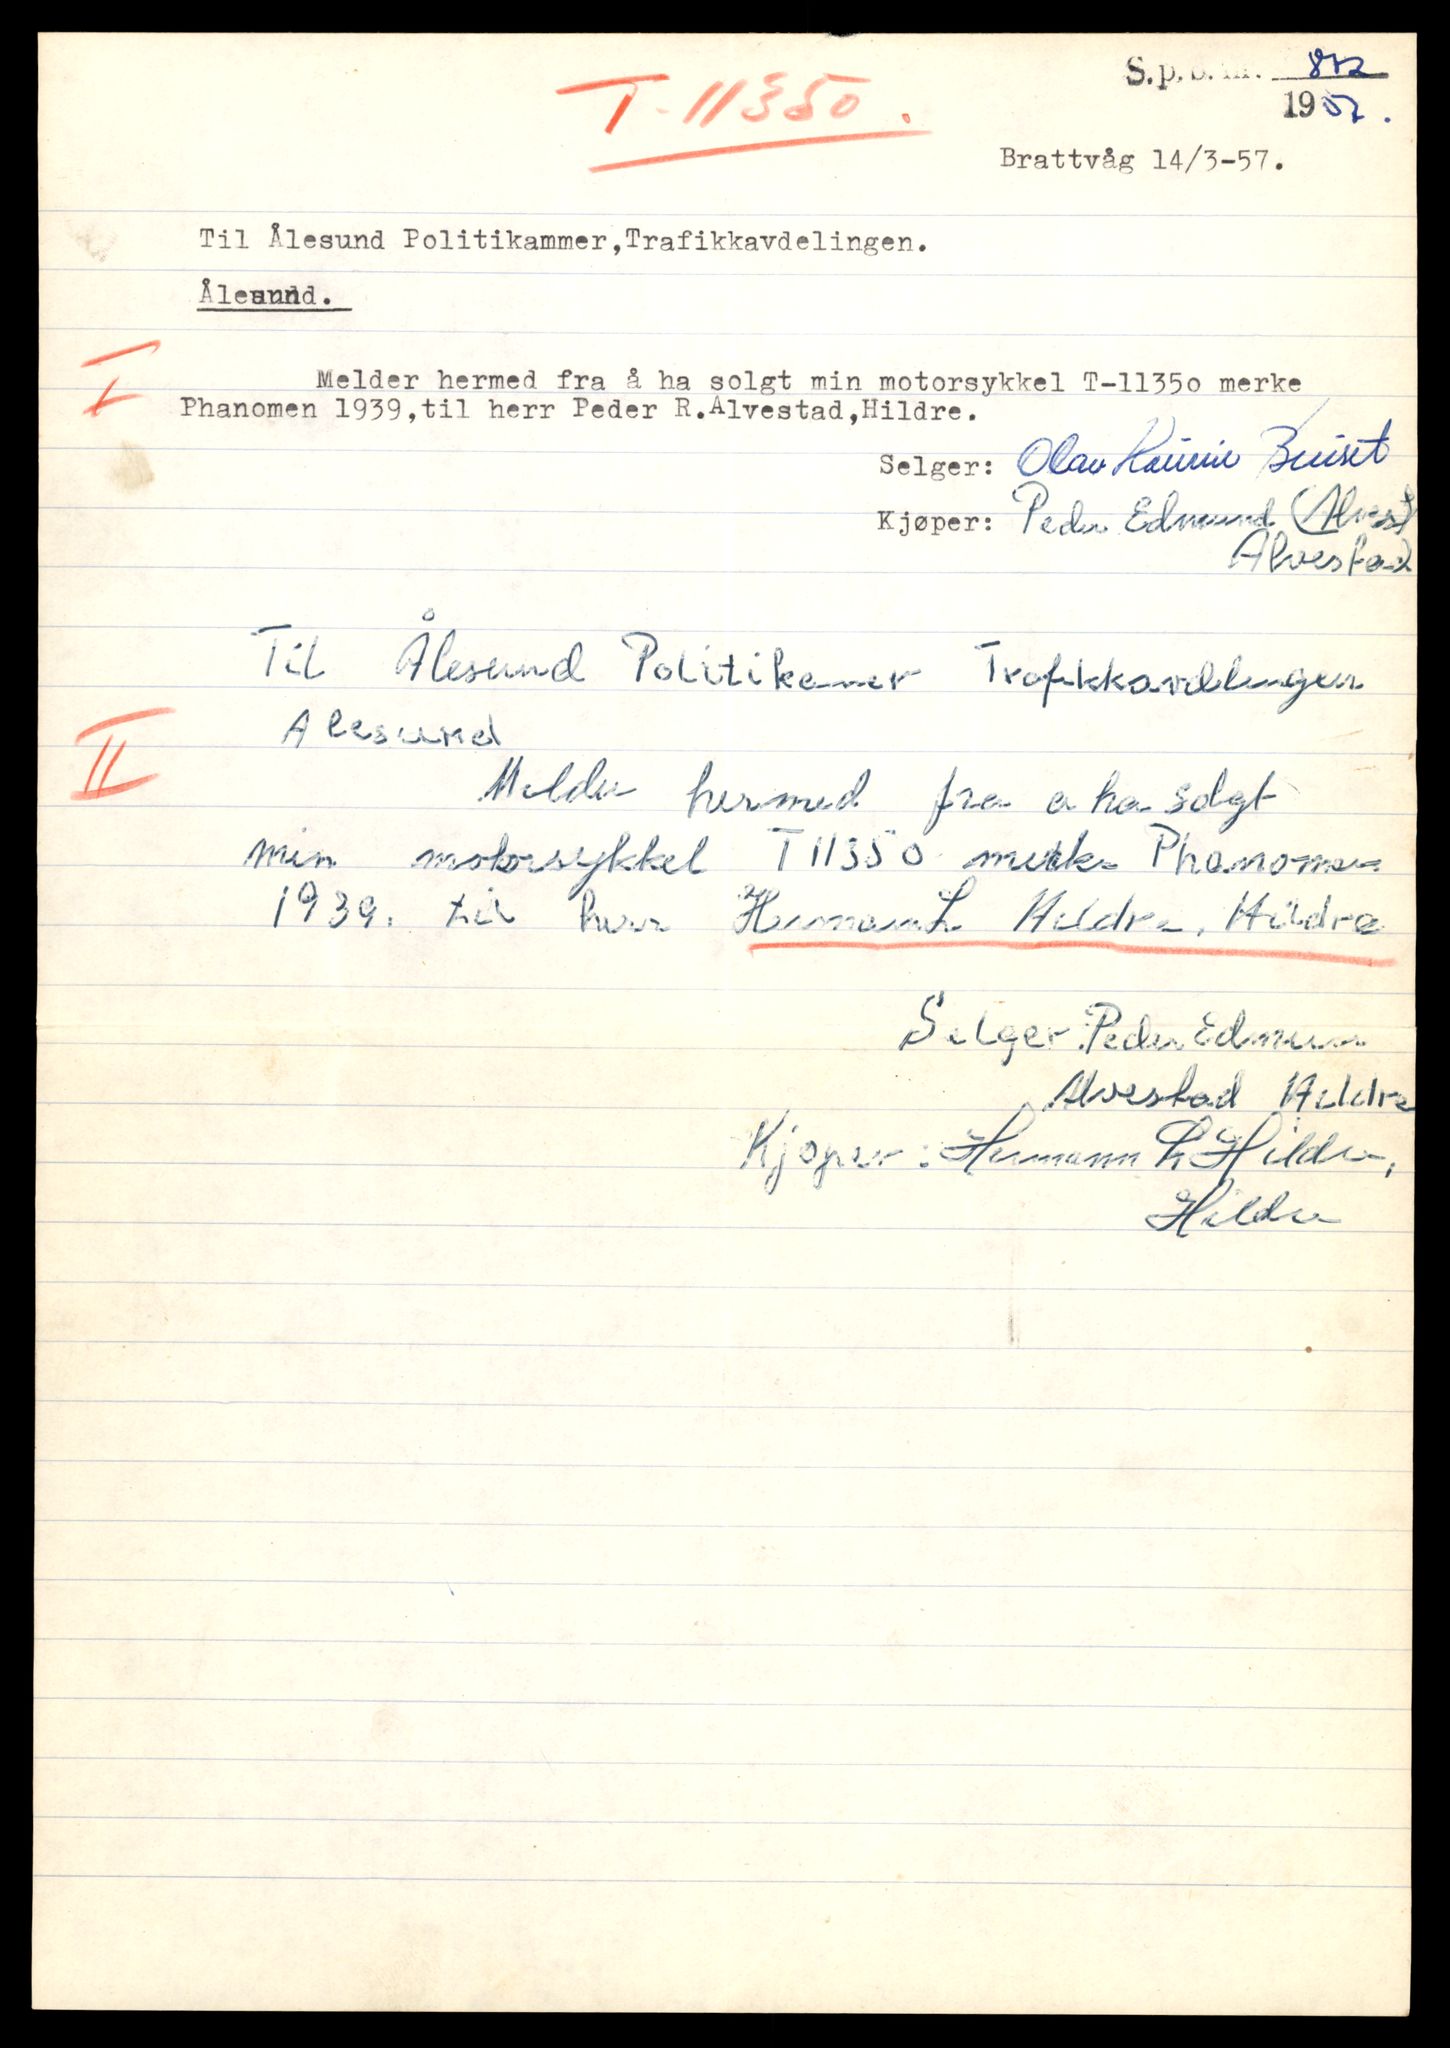 T-11350.
S.p.b.nr. 872
1957.
Brattvåg 14/3-57.
Til Ålesund Politikammer,Trafikkavdelingen.
Ålesund.
I
Melder hermed fra å ha solgt min motorsykkel T-1135o merke
Phanomen 1939,til herr Peder R.Alvestad,Hildre.
Selger: Olav
Kjøper: Peder Edmund (Alvest)
Alvestad
Til Ålesund Politikamer Trafikkavdlingen
Alesund
II
Melder hermed fra a ha solgt
min motorsykkel T11350 merke Phanomen
1939. til herr Hermann L Hildre, Hildre
Selger: Peder Edmun
Alvestad Hildre
Kjøper: Hermann L Hildre,
Hildre